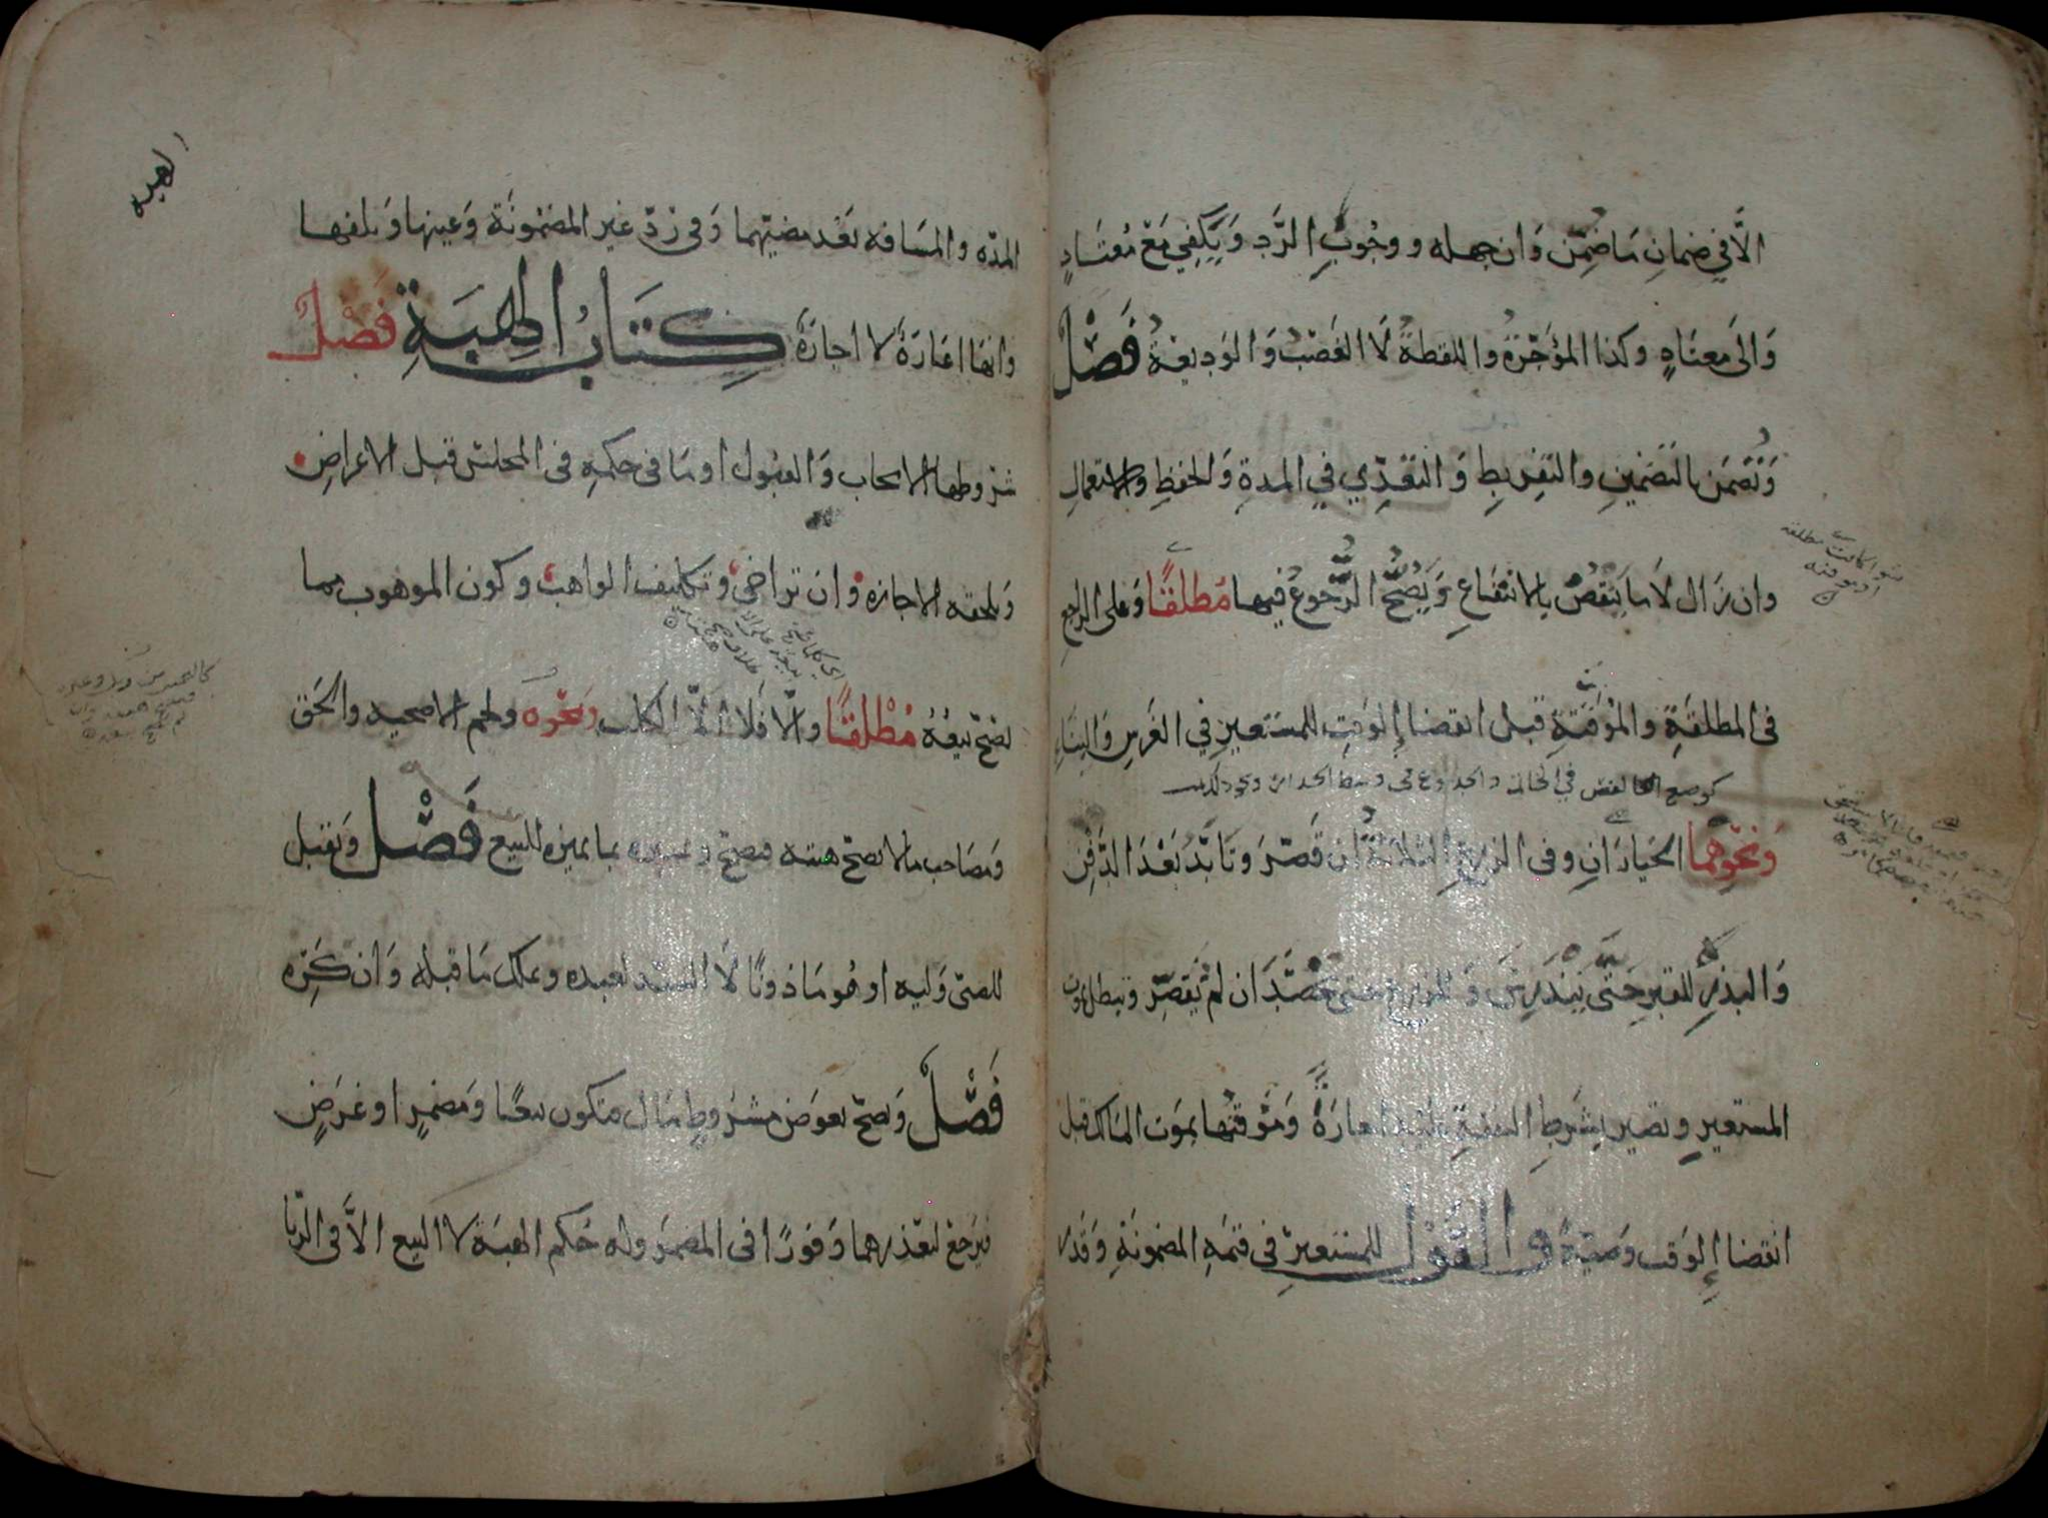 الَّا في ضمانِ مَا ضُمِّن وَان جهله ووجُوبِ الرَّدِ وَيَكفِي مَعَ مُعتَادٍ
وَالى معتَادٍ وكذا المؤجَّرَةُ واللقطةُ لَا الغَصْبُ وَالوَدِيعَةُ فَصْلٌ
وَتُضمَن بالتَضمينِ والتَفرِيطِ وَالتَعَدِّي فِي المدةِ وَالحفظِ والاستعمالِ
وان زال لَا مَا يَنقُصُ بالانتفَاعِ وَيَصُحُّ الرُّجُوعُ فيهَا مُطلقًا وَعَلى الراجعِ
في المطلقَةِ والمُوَقتَةِ قبل انقضا الوَقتِ للمستعيرِ فِي الغَرسِ وَالبنَاءِ
وَنَحْوِهِمَا الخيارَانِ وفي الزرعِ الثلاثةُ ان قَصَّرَ وتَابَّدُ بَعْدَ الدَّفنِ
وَالبذرِ للقبرِ حَتَّى يَندَرِسَ وَللزرعِ حتى يحصَدَ ان لم يُقصِّر وتبطل بموت
المستعيرِ وتصير بشَرطِ النفقةِ عليه اجارَةً وَمُوَقتُها بموت المَالك قبل
انقضا الوَقت وصيَّةً والقَولُ للمستعيرِ في قيمَةِ المضمونَةِ وَقَدرِ
الهبه
المدّه والمسَافه بَعْد مضيّهما وَفي رَدّ غير المضمُونَة وَعينها وَتلفها
وانها اعَارَةٌ لا اجارَةٌ كِتَابُ الهِبَةِ فَصْلٌ
شرُوطها الايجاب وَالقبُول او مَا في حكمهِ في المجلسِ قبل الاعراضِ
وَتلحقه الاجازه وان تراخى وتكليف الواهب وكون الموهوب مما
يَصحّ بَيعُهُ مُطْلقًا وَالّا فَلا الّا الكلب وَنحْوه ولحم الاضحيه والحَق
وَمصَاحب مالا تصحّ هبته فيصحّ بما يميزه للبيع فَصْل وَيَقبَل
للصَّبي وَليه او هُو مَاذونًا لَا السيّد لعبده وَيملك مَا قبله وَان كَرِه
فَصْلٌ وَيصحّ بعوَض مشرُوطٍ مَال فيكون بيعًا وَمضمَرٍ او غَرَضٍ
فيَرجعْ لتعذرهما وَفورًا في المضمَرِ وله حُكم الهبَة لا البيع الَّا في الربَا